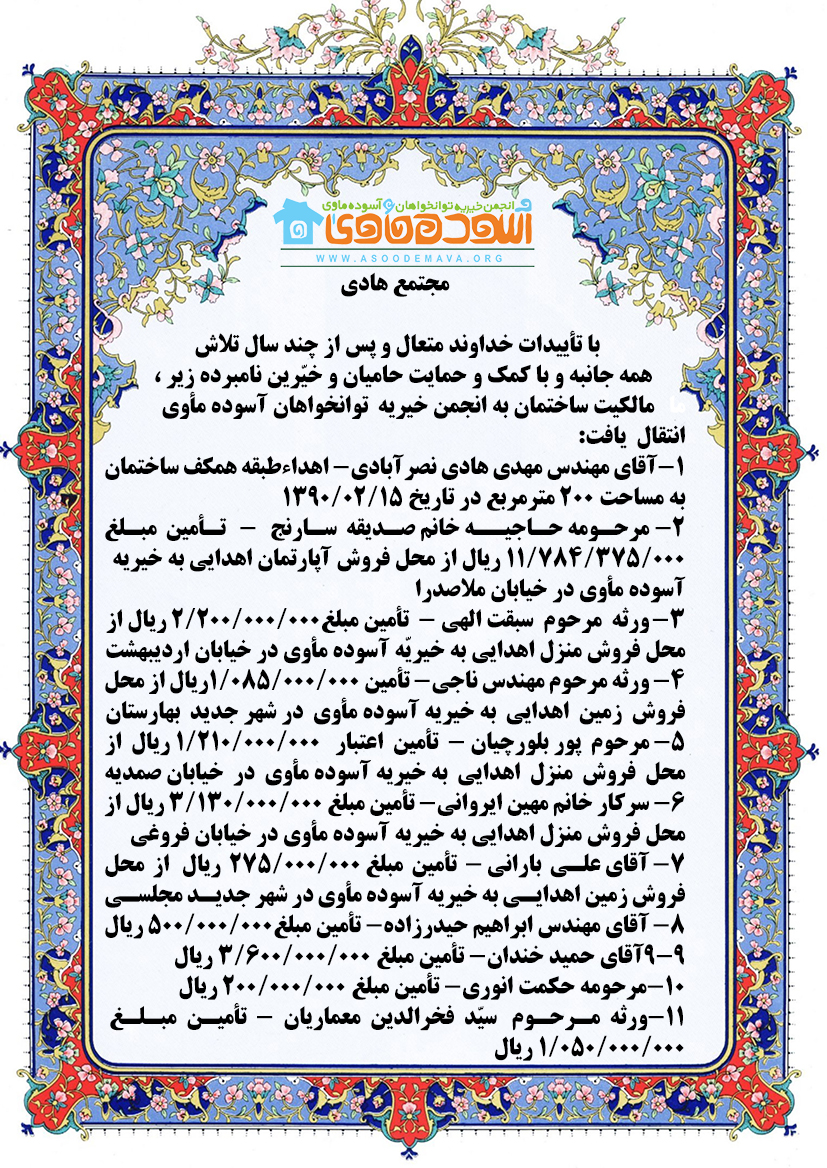 انجمن خیریه توانخواهان آسوده مأوی
آسوده مأوی
WWW.ASOODEMAVA.ORG
مجتمع هادی
با تأییدات خداوند متعال و پس از چند سال تلاش
همه جانبه و با کمک و حمایت حامیان و خیّرین نامبرده زیر ،
ما مالکیت ساختمان به انجمن خیریه توانخواهان آسوده مأوی
انتقال یافت:
۱-آقای مهندس مهدی هادی نصرآبادی- اهداءطبقه همکف ساختمان
به مساحت ۲۰۰ مترمربع در تاریخ ۱۳۹۰/۰۲/۱۵
۲- مرحـومه حـاجیـــه خانم صـدیقه سـارنج - تـأمین مبـلغ
۱۱/۷۸۴/۳۷۵/۰۰۰ ریال از محل فروش آپارتمان اهدایی به خیریه
آسوده مأوی در خیابان ملاصدرا
۳-ورثه مرحوم سبقت الهی - تأمین مبلغ۲/۲۰۰/۰۰۰/۰۰۰ ریال از
محل فروش منزل اهدایی به خیریّه آسوده مأوی در خیابان اردیبهشت
۴- ورثه مرحوم مهندس ناجی- تأمین ۱/۰۸۵/۰۰۰/۰۰۰ریال از محل
فروش زمین اهدایی به خیریه آسوده مأوی در شهر جدید بهارستان
۵- مرحوم پور بلورچیان - تأمین اعتبار ۱/۲۱۰/۰۰۰/۰۰۰ ریال از
محل فروش منزل اهدایی به خیریه آسوده مأوی در خیابان صمدیه
۶- سرکار خانم مهین ایروانی- تأمین مبلغ ۳/۱۳۰/۰۰۰/۰۰۰ ریال از
محل فروش منزل اهدایی به خیریه آسوده مأوی در خیابان فروغی
۷- آقای علــی بارانی - تأمین مبلغ ۲۷۵/۰۰۰/۰۰۰ ریال از محل
فروش زمین اهدایــی به خیریه آسوده مأوی در شهر جدیـد مجلسـی
۸- آقای مهندس ابراهیم حیدرزاده- تأمین مبلغ۵۰۰/۰۰۰/۰۰۰ ریال
۹-۹آقای حمید خندان- تأمین مبلغ ۳/۶۰۰/۰۰۰/۰۰۰ ریال
۱۰-مرحومه حکمت انوری- تأمین مبلغ ۲۰۰/۰۰۰/۰۰۰ ریال
۱۱-ورثه مـرحـوم سیّد فخرالدین معماریان - تأمیـن مبـلـغ
۱/۰۵۰/۰۰۰/۰۰۰ ریال